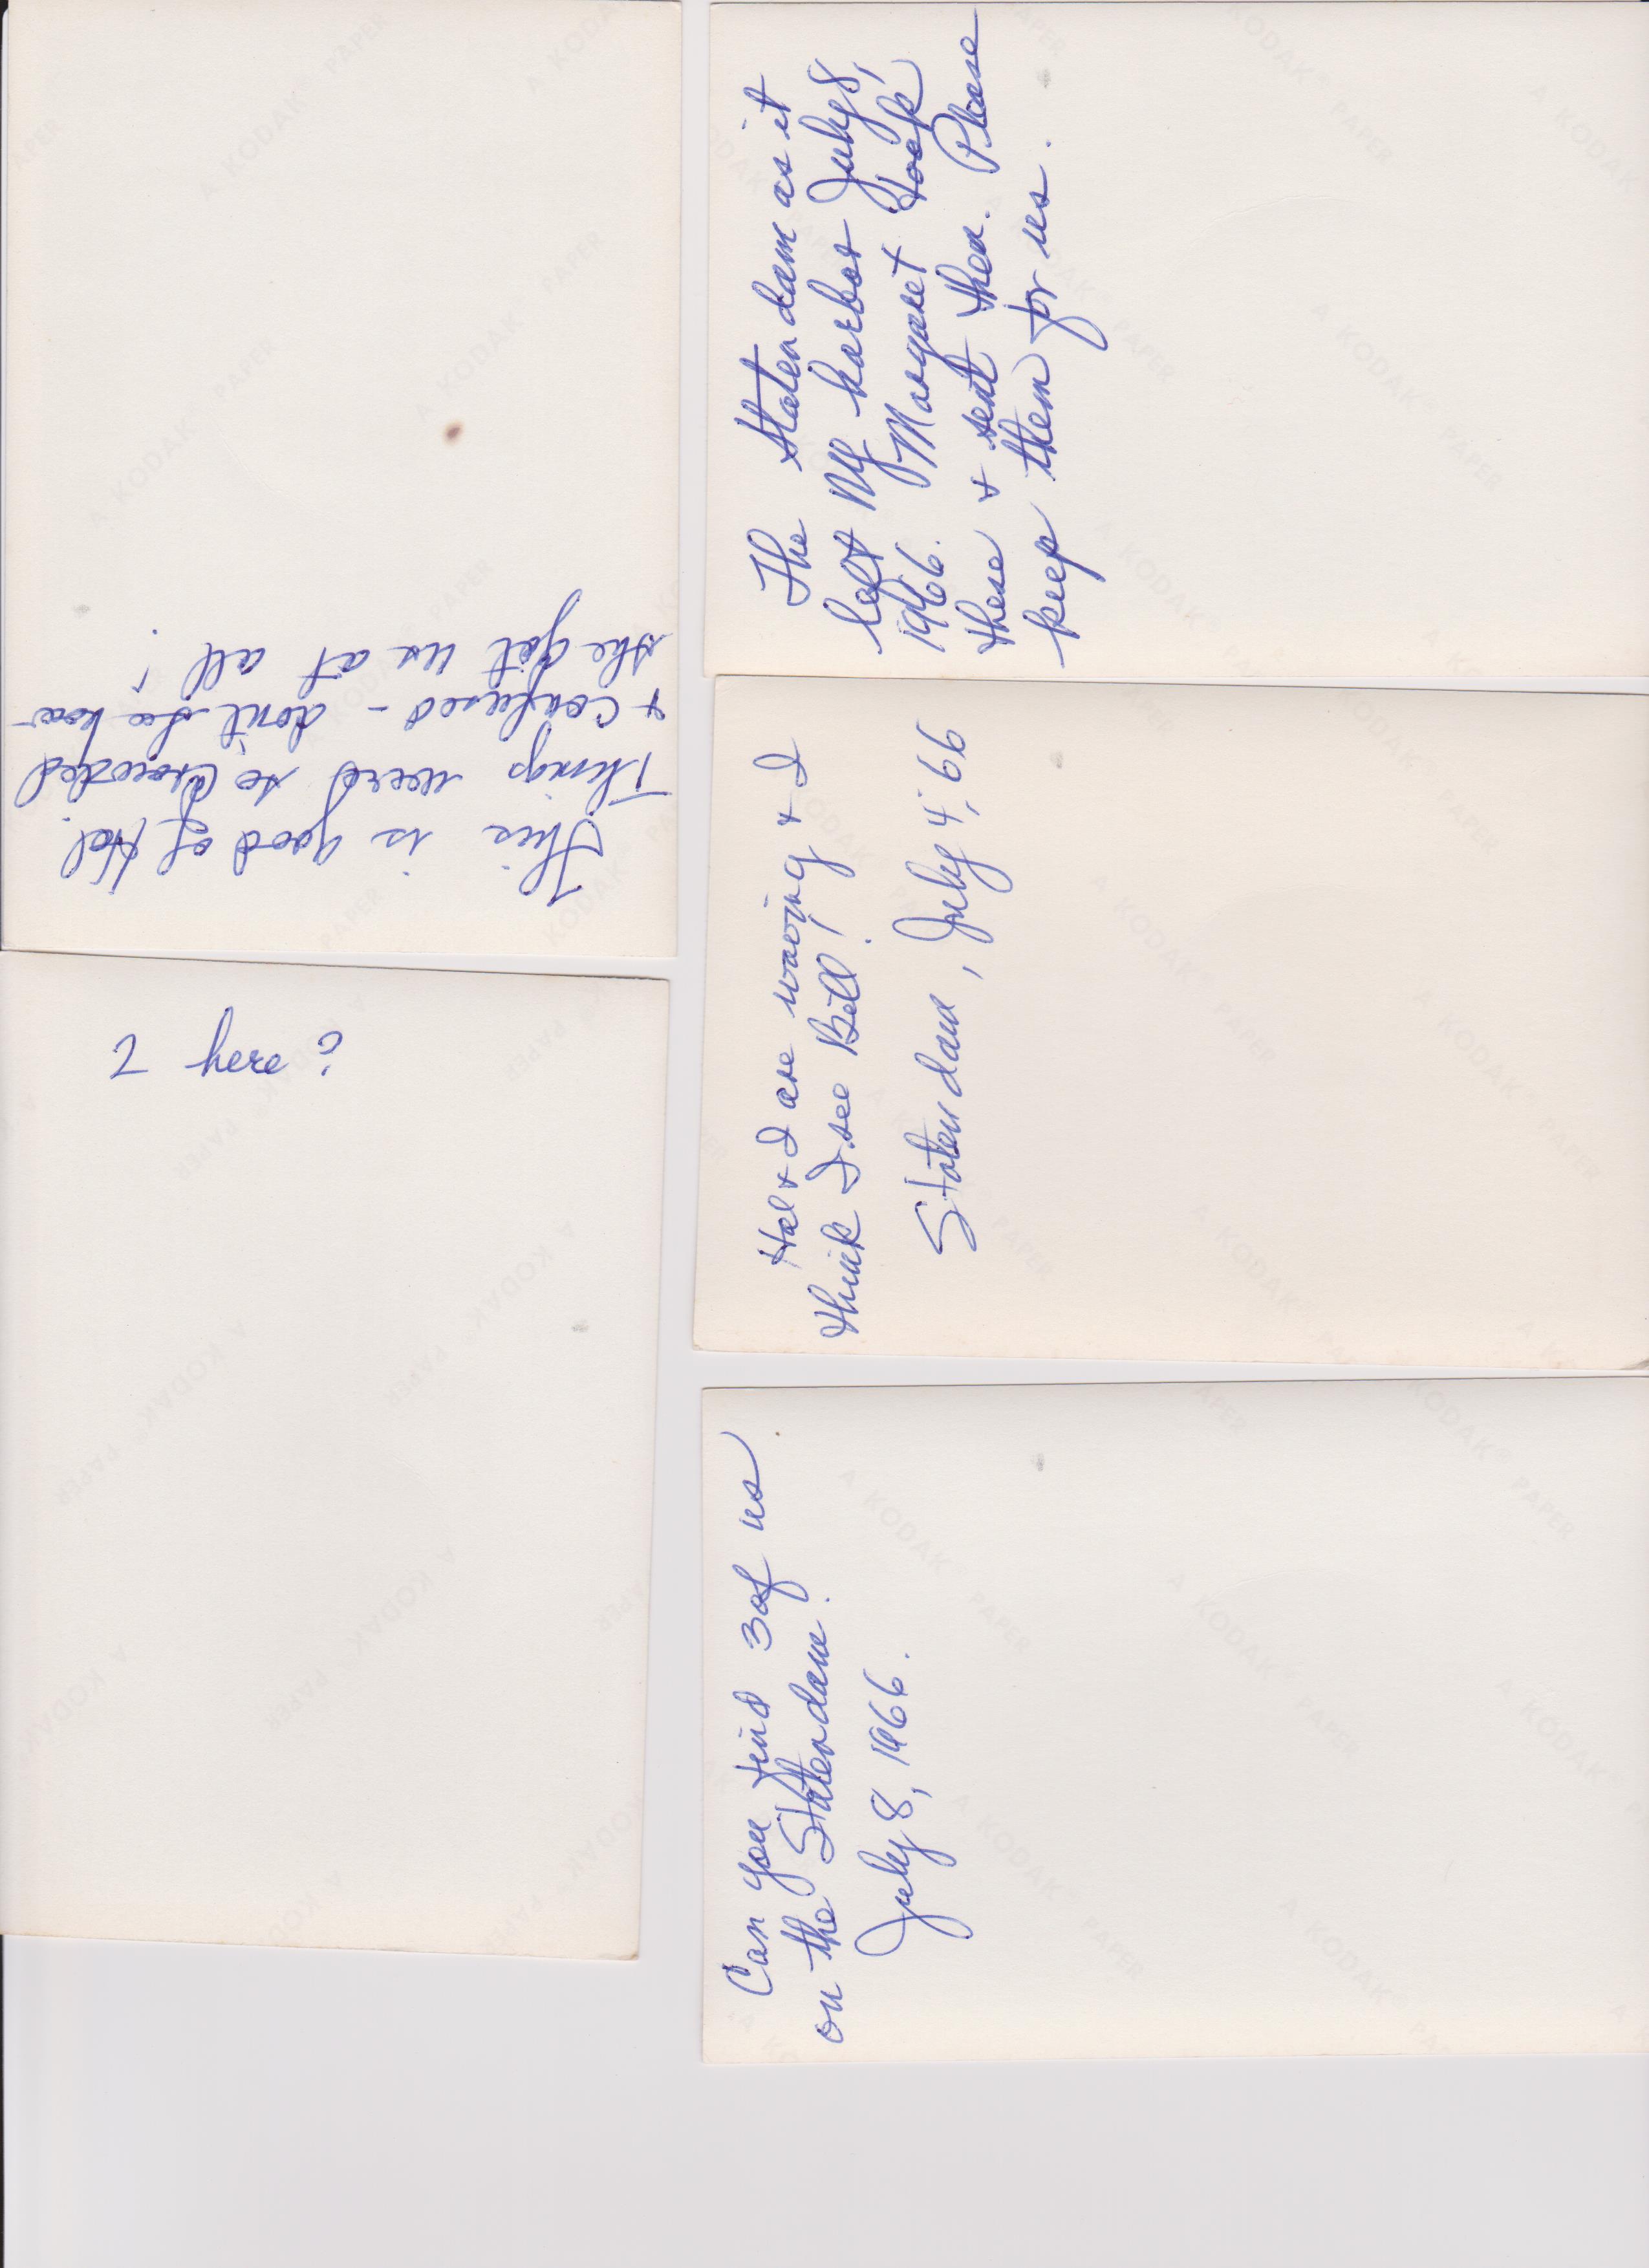 This is good of Hal.
Things were so crowded
& confused - don't see how
she got us at all!
2 here?
The Statendam as it
left NY harbor July 8,
1966. Margaret took
these & sent them. Please
keep them for us.
Hal & I are waving & I
think I see Bill!
Statendam, July 4, 66
Can you find 3 of us
on the Statendam?
July 8, 1966.
A KODAK® PAPER